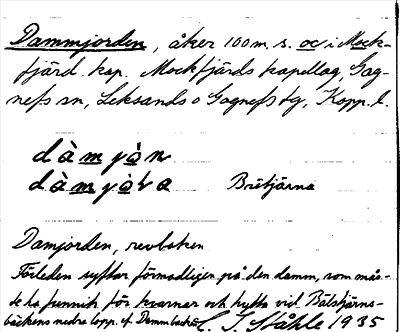 Dammjorden, åker 100 m. s. oc i Mock-
fjärd. kap. Mockfjärds kapellag, Gag-
nefs sn, Leksands o Gagnefs tg, Kopp. l.
dàmjòn
dàmjòɫa Britjärna
Damjorden, revboken
Förleden syftar förmodligen på den damm, som mås-
te ha funnits för kvarnar och hytta vid Båtstjärns-
bäckens nedre lopp. cf Dammbacken C. I. Ståhle 1935